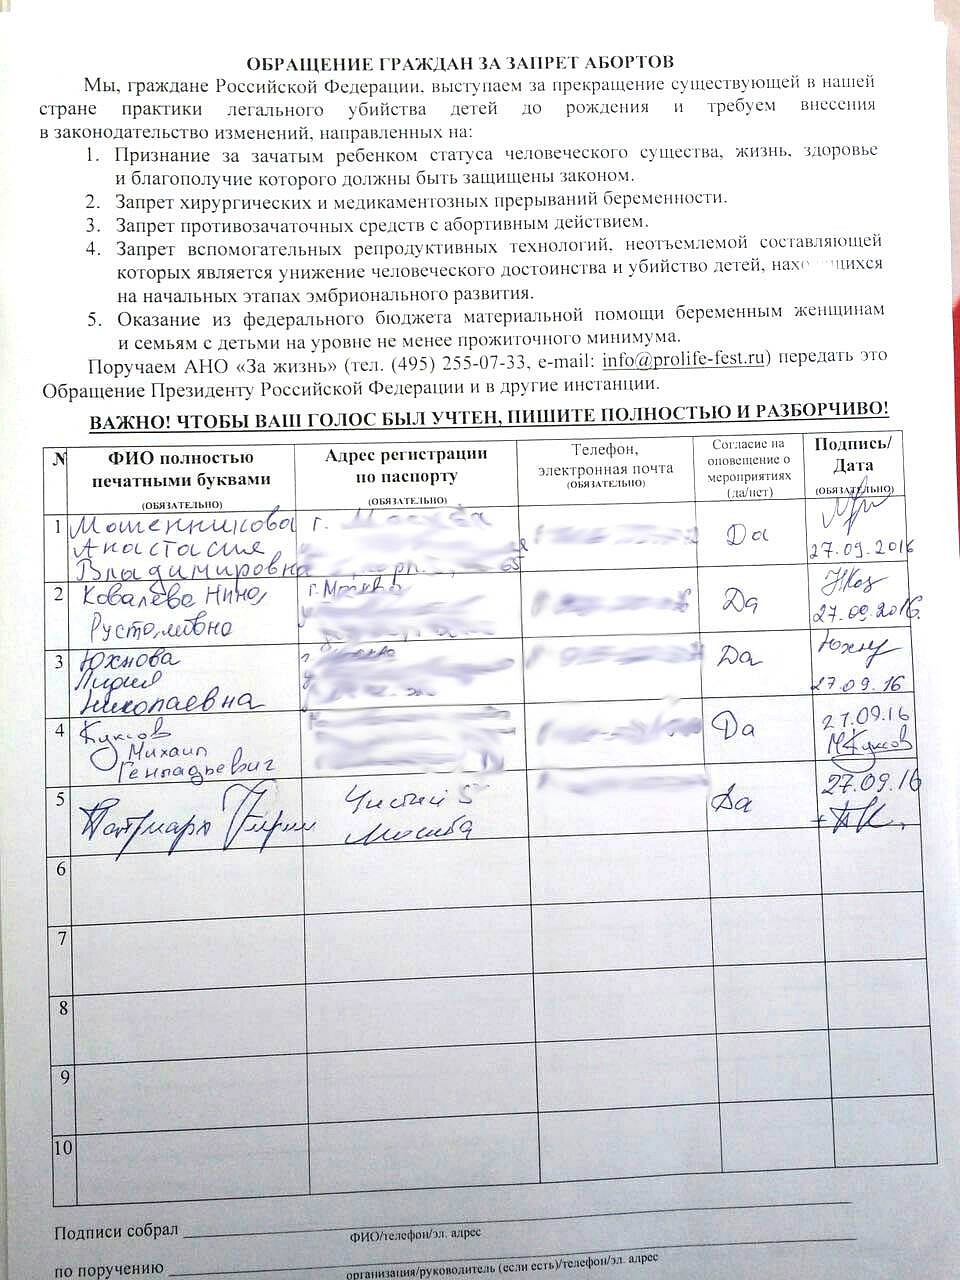 ОБРАЩЕНИЕ ГРАЖДАН ЗА ЗАПРЕТ АБОРТОВ
Мы, граждане Российской Федерации, выступаем за прекращение существующей в нашей
стране практики легального убийства детей до рождения и требуем внесения
в законодательство изменений, направленных на:
1. Признание за зачатым ребенком статуса человеческого существа, жизнь, здоровье
и благополучие которого должны быть защищены законом.
2. Запрет хирургических и медикаментозных прерываний беременности.
3. Запрет противозачаточных средств с абортивным действием.
4. Запрет вспомогательных репродуктивных технологий, неотъемлемой составляющей
которых является унижение человеческого достоинства и убийство детей, находящихся
на начальных этапах эмбрионального развития.
5. Оказание из федерального бюджета материальной помощи беременным женщинам
и семьям с детьми на уровне не менее прожиточного минимума.
Поручаем АНО «За жизнь» (тел. (495) 255-07-33, e-mail: info@prolife-fest.ru) передать это
Обращение Президенту Российской Федерации и в другие инстанции.
ВАЖНО! ЧТОБЫ ВАШ ГОЛОС БЫЛ УЧТЕН, ПИШИТЕ ПОЛНОСТЬЮ И РАЗБОРЧИВО!
N
ФИО полностью
печатными буквами
(ОБЯЗАТЕЛЬНО)
Адрес регистрации
по паспорту
(ОБЯЗАТЕЛЬНО)
Телефон,
электронная почта
(ОБЯЗАТЕЛЬНО)
Согласие на
оповещение о
мероприятиях
(да/нет)
Подпись/
Дата
(ОБЯЗАТЕЛЬНО)
1
Мошенникова
Анастасия
Владимировна
г. Москва
65
Да
27.09.2016
2
Ковалева Нина
Рустамивна
г. Москва
Да
НКов
27.09.2016.
3
Юхнова
Лидия
Николаевна
Да
Юхну
27.09.16
4
Куксов
Михаил
Геннадьевич
Да
27.09.16
МКуксов
5
Патриарх Кирилл
Чистый 5
Москва
Да
27.09.16
+ПК.
6
7
8
9
10
Подписи собрал
ФИО/телефон/эл. адрес
по поручению
организация/руководитель (если есть)/телефон/эл. адрес